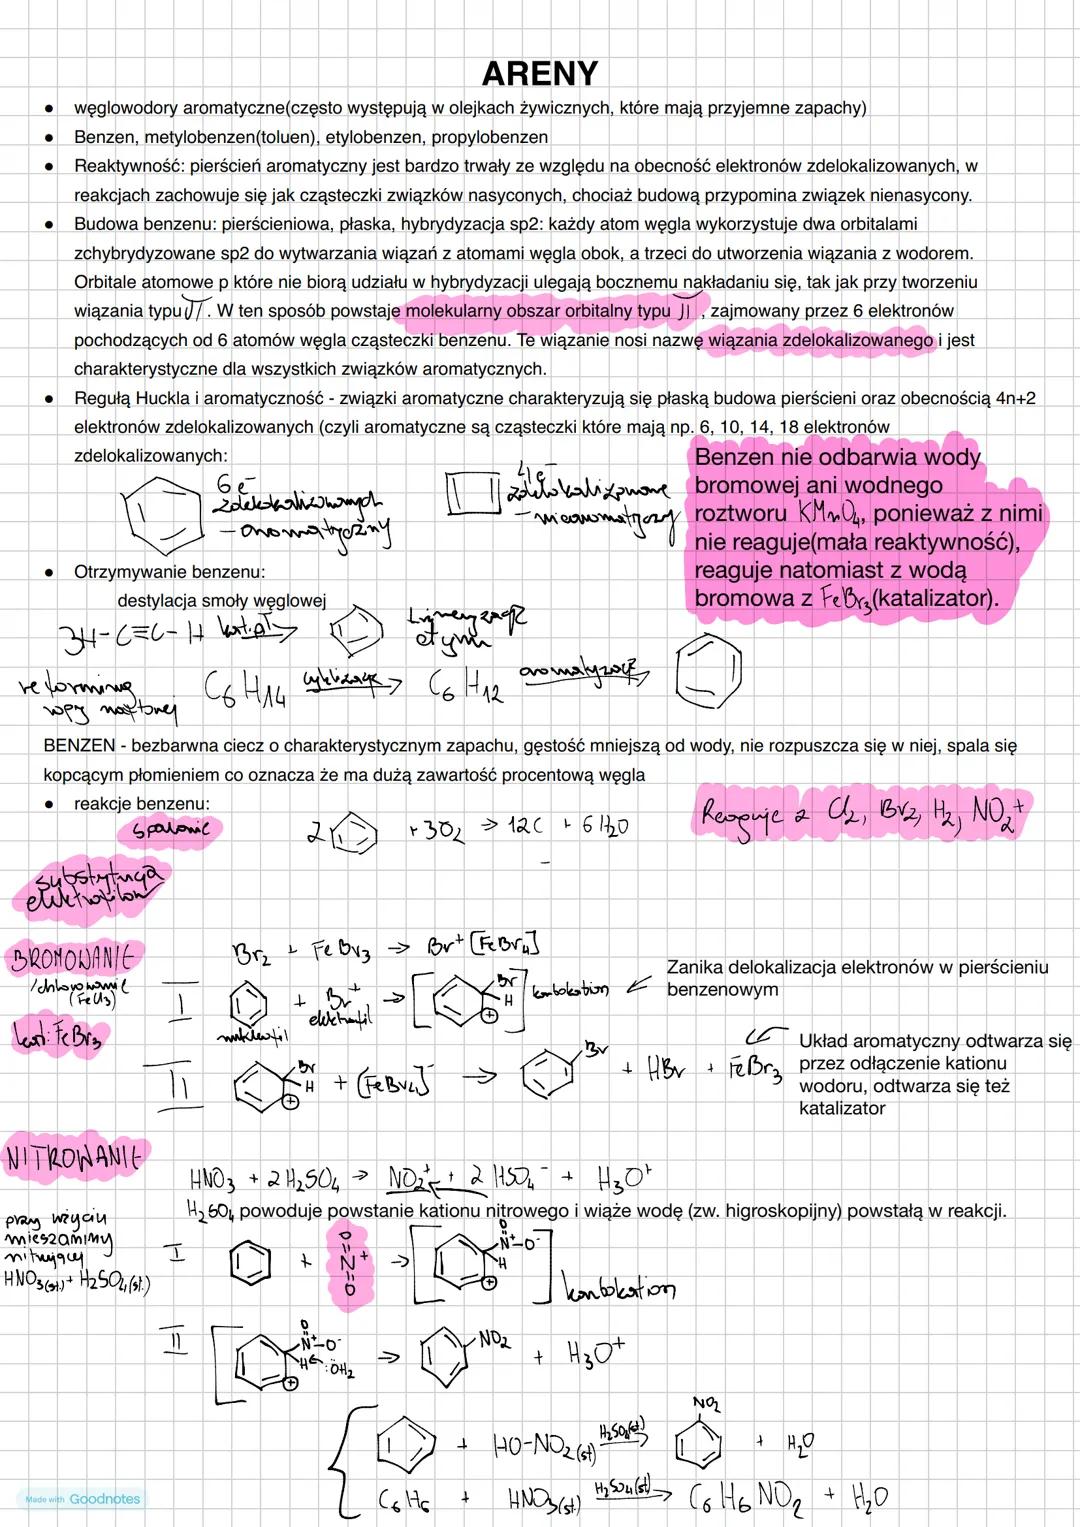 ARENY
● węglowodory aromatyczne(często występują w olejkach żywicznych, które mają przyjemne zapachy)
● Benzen, metylobenzen(toluen), etylobenzen, propylobenzen
● Reaktywność: pierścień aromatyczny jest bardzo trwały ze względu na obecność elektronów zdelokalizowanych, w
reakcjach zachowuje się jak cząsteczki związków nasyconych, chociaż budową przypomina związek nienasycony.
● Budowa benzenu: pierścieniowa, płaska, hybrydyzacja sp2: każdy atom węgla wykorzystuje dwa orbitalami
zchybrydyzowane sp2 do wytwarzania wiązań z atomami węgla obok, a trzeci do utworzenia wiązania z wodorem.
Orbitale atomowe p które nie biorą udziału w hybrydyzacji ulegają bocznemu nakładaniu się, tak jak przy tworzeniu
wiązania typu π. W ten sposób powstaje molekularny obszar orbitalny typu π, zajmowany przez 6 elektronów
pochodzących od 6 atomów węgla cząsteczki benzenu. Te wiązanie nosi nazwę wiązania zdelokalizowanego i jest
charakterystyczne dla wszystkich związków aromatycznych.
● Regułą Huckla i aromatyczność - związki aromatyczne charakteryzują się płaską budowa pierścieni oraz obecnością 4n+2
elektronów zdelokalizowanych (czyli aromatyczne są cząsteczki które mają np. 6, 10, 14, 18 elektronów
zdelokalizowanych:
6e⁻
zdelokalizowanych
- aromatyczny
4e⁻
zdelokalizowane
- niearomatyczny
Benzen nie odbarwia wody
bromowej ani wodnego
roztworu KMnO₄, ponieważ z nimi
nie reaguje(mała reaktywność),
reaguje natomiast z wodą
bromowa z FeBr₃(katalizator).
● Otrzymywanie benzenu:
destylacja smoły węglowej
3H-C≡C-H kat. p,T →
etynu
reforming
ropy naftowej
C₆H₁₄ cyklizacja → C₆H₁₂ aromatyzacja →
BENZEN - bezbarwna ciecz o charakterystycznym zapachu, gęstość mniejszą od wody, nie rozpuszcza się w niej, spala się
kopcącym płomieniem co oznacza że ma dużą zawartość procentową węgla
● reakcje benzenu:
spalanie
2 + 3O₂ → 12C + 6H₂O
Reaguje z Cl₂, Br₂, H₂, NO₂⁺
substytucja
elektrofilowa
BROMOWANIE
/chlorowanie
(FeCl₃)
kat: FeBr₃
Br₂ + FeBr₃ → Br⁺ [FeBr₄]
I + Br⁺ → [ Br H ⊕ ] karbokation
nukleofil elektrofil
Zanika delokalizacja elektronów w pierścieniu
benzenowym
II Br H ⊕ + [FeBr₄]⁻ → Br + HBr + FeBr₃
Układ aromatyczny odtwarza się
przez odłączenie kationu
wodoru, odtwarza się też
katalizator
NITROWANIE
HNO₃ + 2H₂SO₄ → NO₂⁺ + 2HSO₄⁻ + H₃O⁺
H₂SO₄ powoduje powstanie kationu nitrowego i wiąże wodę (zw. higroskopijny) powstałą w reakcji.
przy użyciu
mieszaniny
nitrującej
HNO₃(st.) + H₂SO₄(st.)
I + O=N⁺=O → [ O N⁺-O⁻ H ⊕ ] karbokation
II [ O N⁺-O⁻ H :ÖH₂ ⊕ → NO₂ + H₃O⁺
+ HO-NO₂(st) H₂SO₄(st) → NO₂ + H₂O
C₆H₆ + HNO₃(st.) H₂SO₄(st) → C₆H₆NO₂ + H₂O
Made with Goodnotes